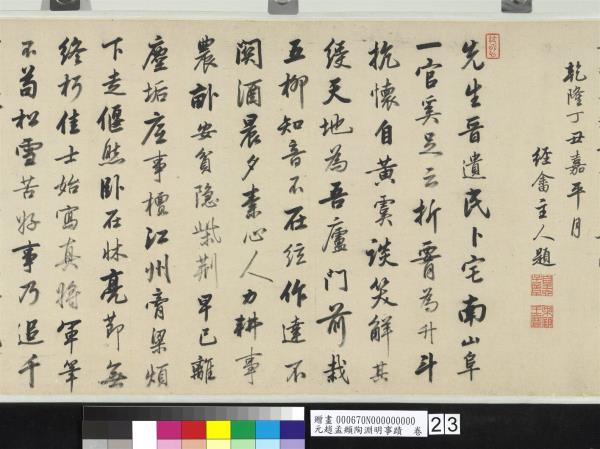 乾隆丁丑嘉平月
經畬主人題
先生晉遺民卜宅南山阜
一官奚足云折腰為升斗
抗懷自黃虞談笑解其
綬天地為吾廬門前栽
五柳知音不在絃作達不
関酒晨夕素心人力耕事
農畝安貧隱柴荆早已離
塵垢底事檀江州膏粱煩
下走偃然卧在牀亮節無
終朽佳士始寫真將軍筆
不苟松雪苦好事乃追千
贈畫 000670N000000000
元趙孟頫陶淵明事蹟 卷
23